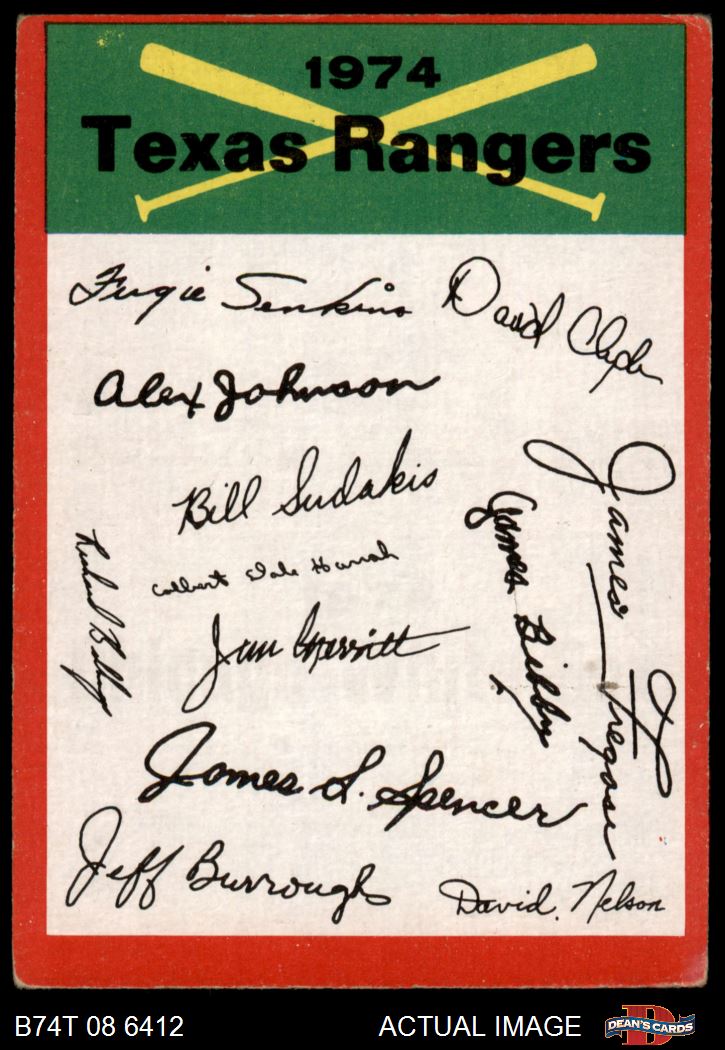 1974
Texas Rangers
Fergie Jenkins
David Clyde
Alex Johnson
Bill Sudakis
James Fregosi
James Bibby
Colbert Dale Harrah
Richard Billings
Jim Merritt
James L. Spencer
Jeff Burroughs
David. Nelson
B74T 08 6412
ACTUAL IMAGE
DEAN'S CARDS